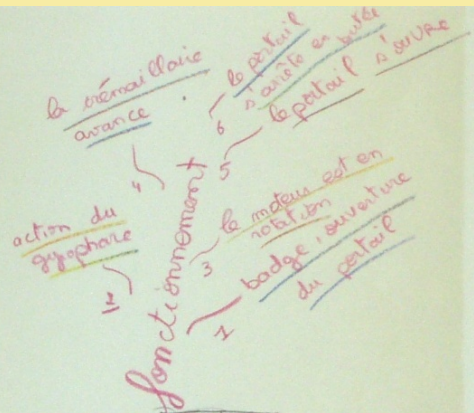 fonctionnement
1
badge, ouverture
du portail
2
action du
gyrophare
3
le moteur est en
rotation
4
la crémaillaire
avance
5
le portail s'ouvre
6
le portail
s'arrête en butée